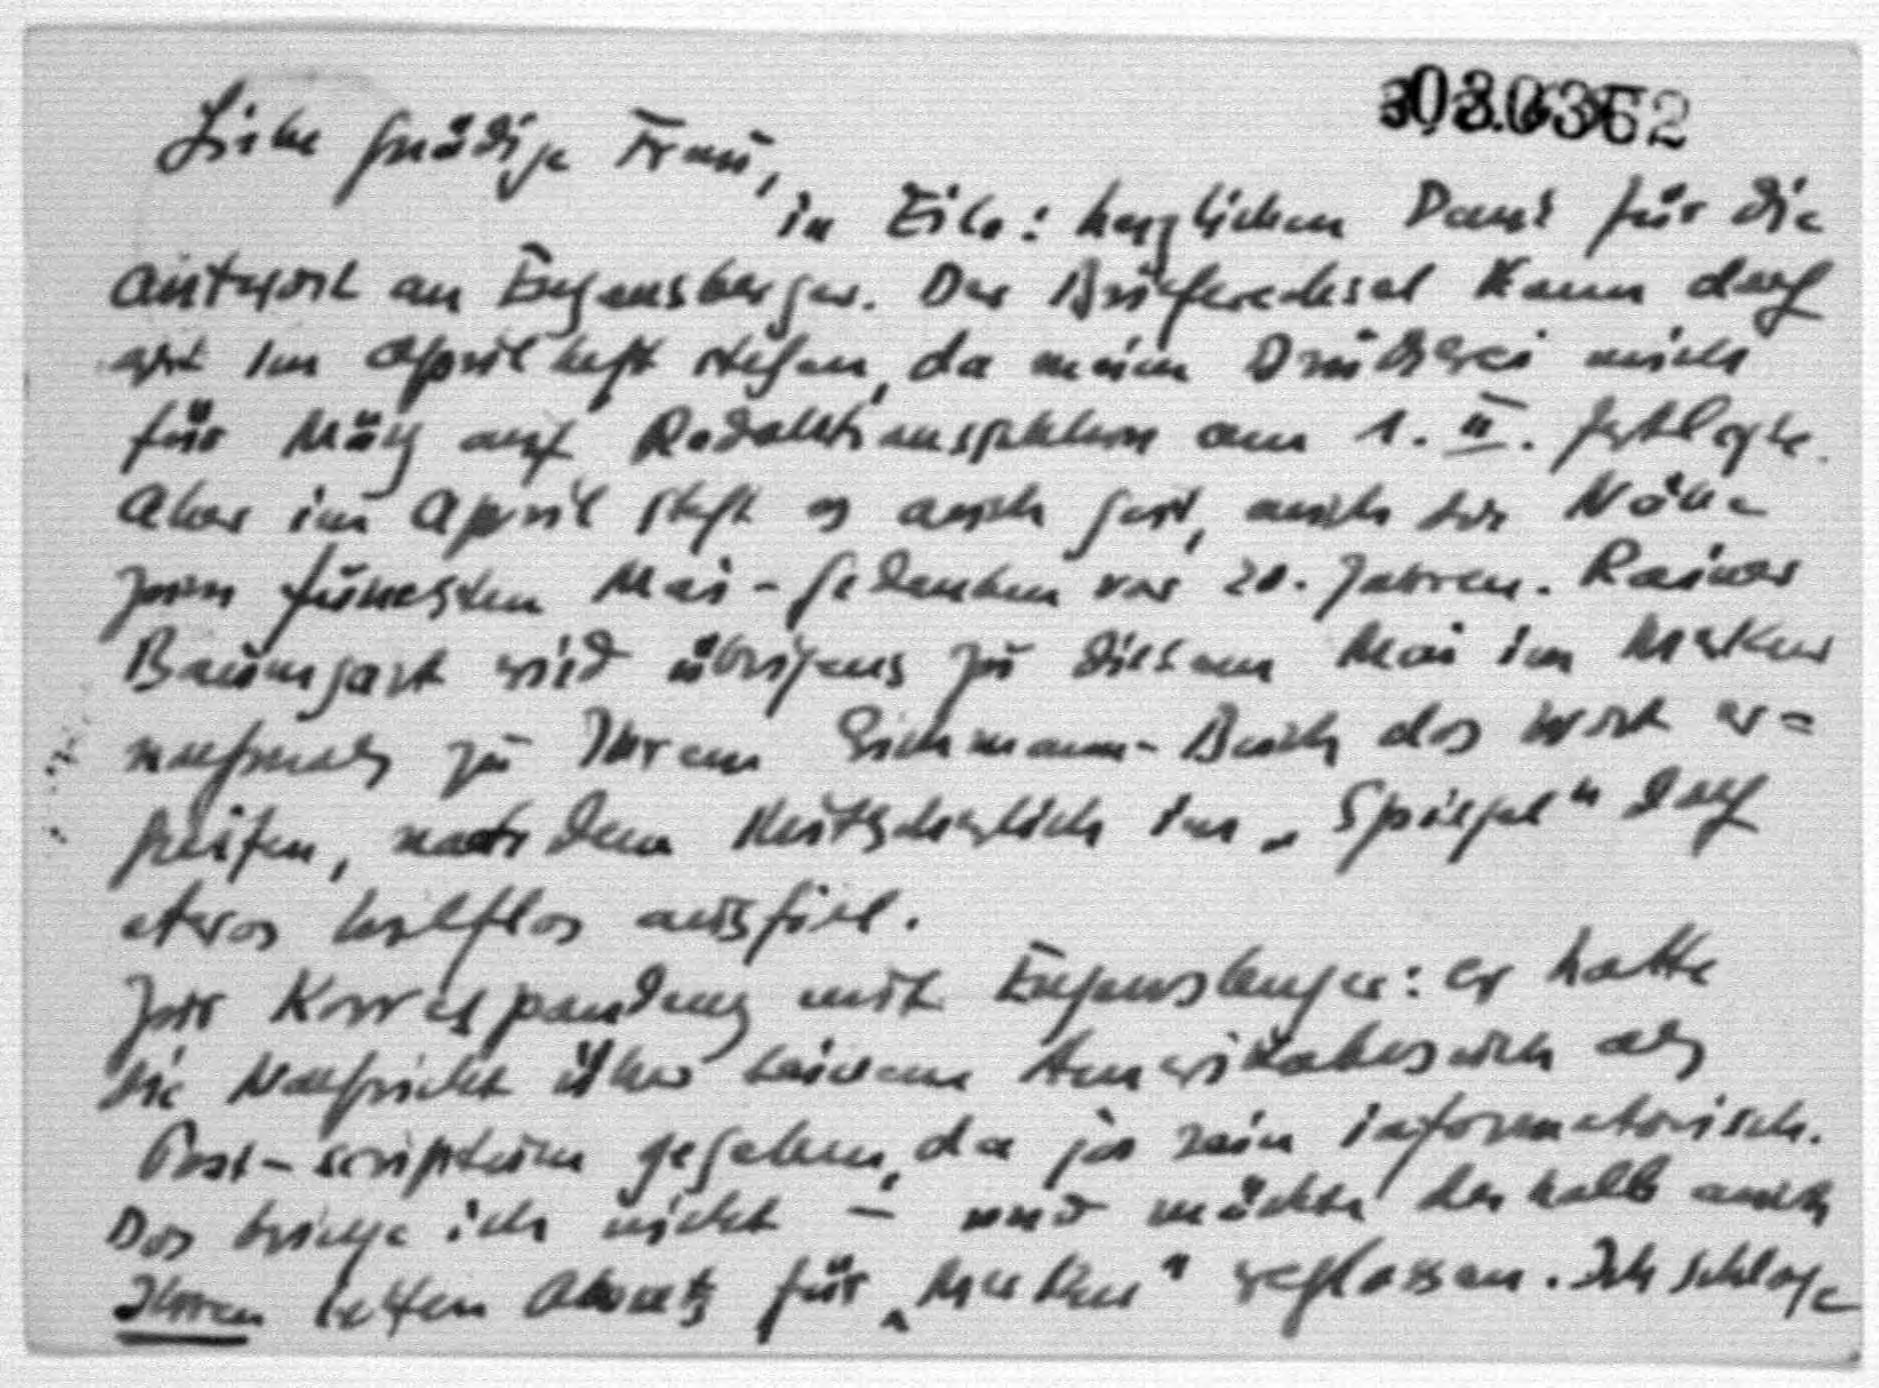 030362
Liebe gnädige Frau,
in Eile: herzlichen Dank für die
Antwort an Enzensberger. Der Briefwechsel kann doch
erst im Aprilheft stehen, da meine Druckerei mich
für März auf Redaktionsschluss am 1. II. festlegte.
Aber im April steht es auch gut, auch die Nähe
zum funesten Mai-Gedenken vor 20. Jahren. Rainer
Baumgart wird übrigens zu diesem Mai im Merkur
nochmals zu Ihrem Eichmann-Buch das Wort er=
greifen, nachdem Mitscherlich im „Spiegel" doch
etwas hilflos ausfiel.
Zur Korrespondenz mit Enzensberger: er hatte
die Nachricht über seinen Amerikabesuch als
Post-scriptum gegeben, da ja rein informatorisch.
Das bringe ich nicht – und möchte deshalb auch
Ihren letzten Absatz für „Merkur" weglassen. Ich schlage